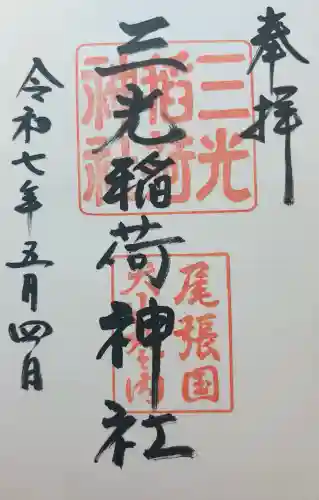 奉拝
三光稲荷神社
令和七年五月四日
三光
稲荷
神社
尾張国
犬山